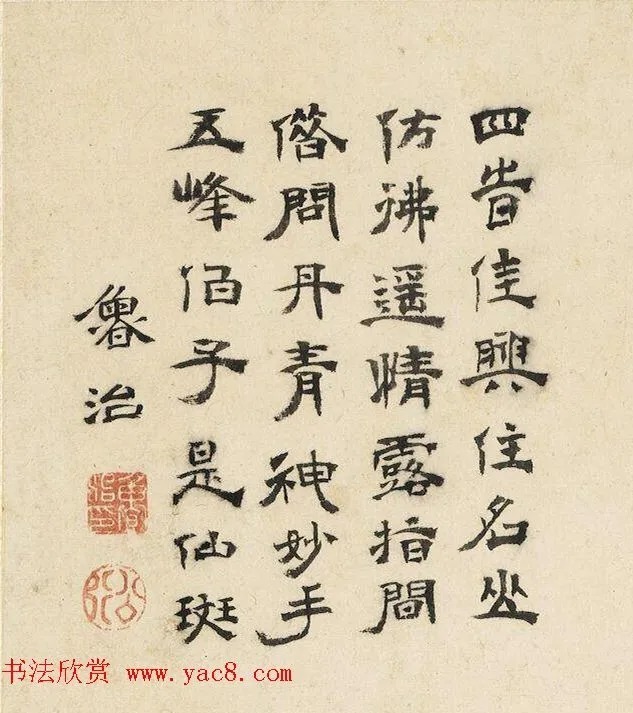 四旹佳興住名山
仿彿遥情露指間
借問丹青神妙手
五峰伯子是仙斑
魯治
书法欣赏 www.yac8.com